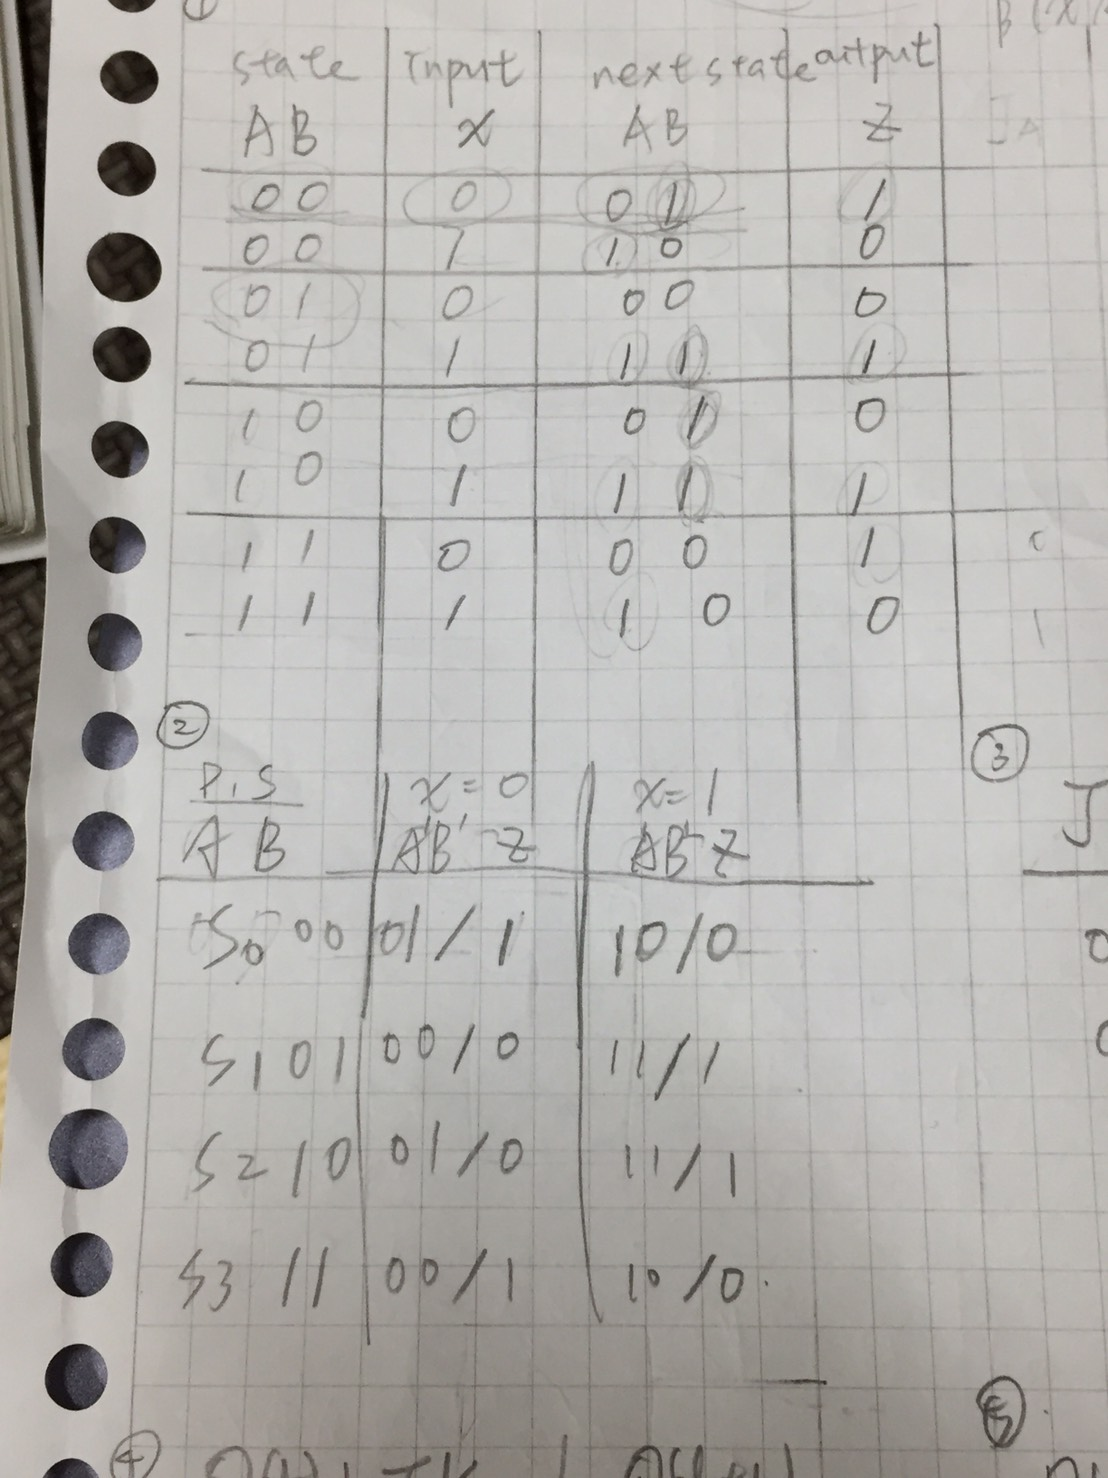 ①
state Input next state output
A B x A B Z
0 0 0 0 1 1
0 0 1 1 0 0
0 1 0 0 0 0
0 1 1 1 1 1
1 0 0 0 1 0
1 0 1 1 1 1
1 1 0 0 0 1
1 1 1 1 0 0
②
P.S x=0 x=1
A B A'B' Z A'B' Z
S0 00 01/1 10/0
S1 01 00/0 11/1
S2 10 01/0 11/1
S3 11 00/1 10/0.
③
J
0
0
④
⑤